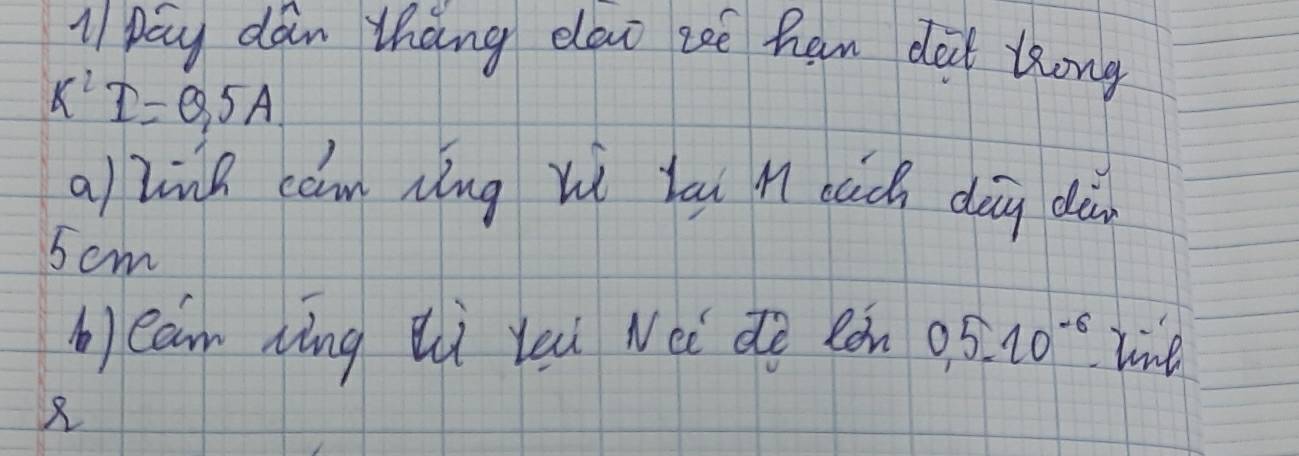 1) Dây dẫn thẳng dài vô hạn đặt trong
K² I = 0,5A.
a) Tính cảm ứng từ tại M cách dây dẫn
5cm
b) Cảm ứng từ tại N có độ lớn 0,5.10⁻⁶. Tính
r